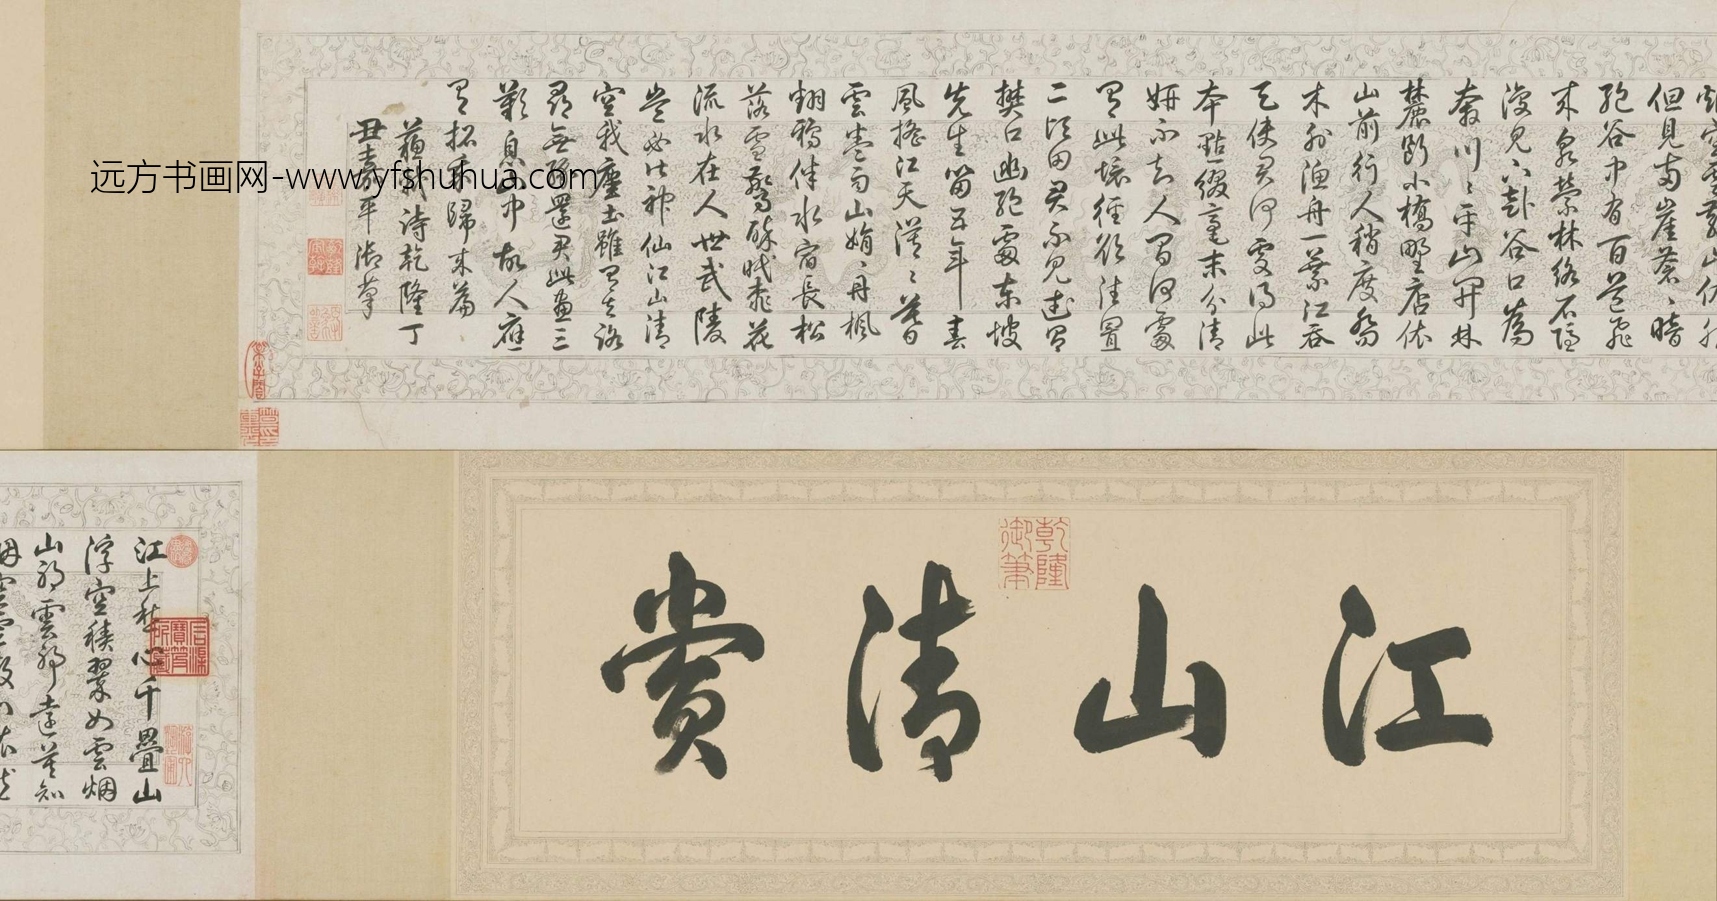 但見兩崖蒼〻暗
絶谷中有百道飛
来泉縈林絡石隱
復見下赴谷口為
奔川〻平山開林
麓斷小橋野店依
山前行人稍度喬
木外漁舟一葉江吞
天使君何處得此
本點綴毫末分清
妍不知人間何處
有此境徑欲往置
二頃田君不見武昌
樊口幽絶處東坡
先生留五年春
風搖江天漠〻暮
雲卷雨山娟〻丹楓
翻鴉伴水宿長松
落雪驚醉眠桃花
流水在人世武陵
豈必皆神仙江山清
空我塵土雖有去路
尋無緣還君此畫三
歎息山中故人應
有招我歸来篇
蘇軾詩乾隆丁
丑嘉平御筆
远方书画网-www.yfshuhua.com
江山清貴
乾隆
御筆
江上愁心千疊山
浮空積翠如雲烟
山耶雲耶遠莫知